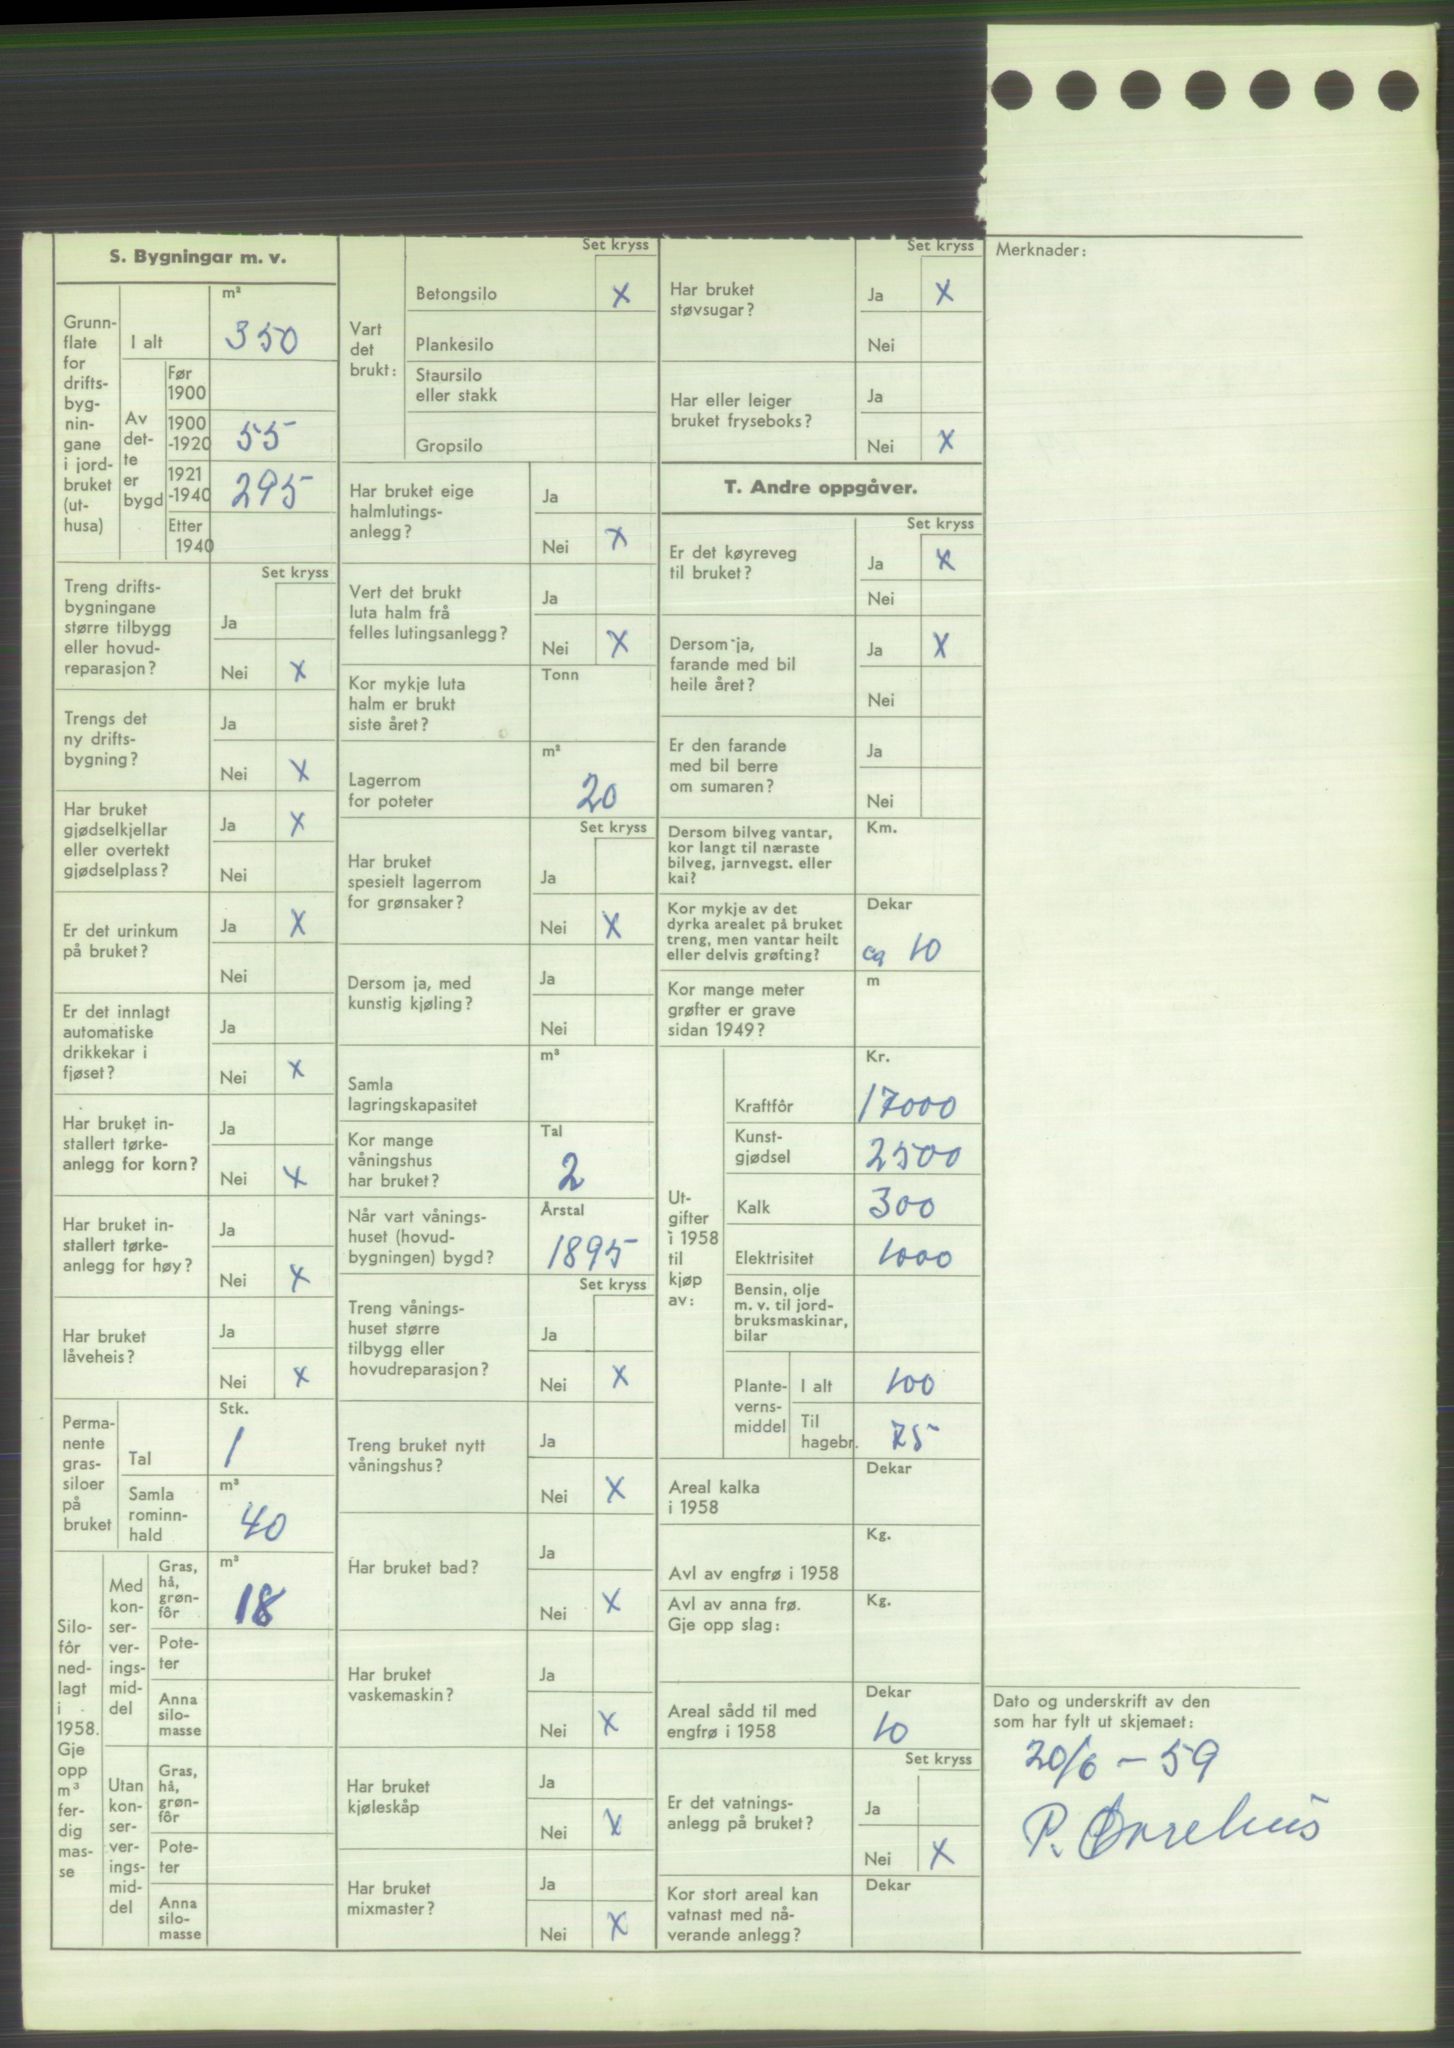 S. Bygningar m. v.
Grunn-
flate
for
drifts-
byg-
nin-
gane
i jord-
bruket
(ut-
husa)
I alt
m²
350
Av
det-
te
er
bygd
Før
1900
1900
-1920
55
1921
-1940
295
Etter
1940
Set kryss
Treng drifts-
bygningane
større tilbygg
eller hovud-
reparasjon?
Ja
Nei X
Trengs det
ny drifts-
bygning?
Ja
Nei X
Har bruket
gjødselkjellar
eller overtekt
gjødselplass?
Ja X
Nei
Er det urinkum
på bruket?
Ja X
Nei
Er det innlagt
automatiske
drikkekar i
fjøset?
Ja
Nei X
Har bruket in-
stallert tørke-
anlegg for korn?
Ja
Nei X
Har bruket in-
stallert tørke-
anlegg for høy?
Ja
Nei X
Har bruket
låveheis?
Ja
Nei X
Perma-
nente
gras-
siloer
på
bruket
Tal
Stk.
1
Samla
rominn-
hald
m³
40
Silo-
fôr
ned-
lagt
i
1958.
Gje
opp
m³
fer-
dig
mas-
se
Med
kon-
ser-
ver-
ings-
mid-
del
Gras,
hå,
grøn-
fôr
m³
18
Pote-
ter
Anna
silo-
masse
Utan
kon-
ser-
ver-
ings-
mid-
del
Gras,
hå,
grøn-
fôr
Pote-
ter
Anna
silo-
masse
Set kryss
Vart
det
brukt:
Betongsilo X
Plankesilo
Staursilo
eller stakk
Gropsilo
Har bruket eige
halmlutings-
anlegg?
Ja
Nei X
Vert det brukt
luta halm frå
felles lutingsanlegg?
Ja
Nei X
Kor mykje luta
halm er brukt
siste året?
Tonn
Lagerrom
for poteter
m²
20
Set kryss
Har bruket
spesielt lagerrom
for grønsaker?
Ja
Nei X
Dersom ja, med
kunstig kjøling?
Ja
Nei
Samla
lagringskapasitet
m³
Kor mange
våningshus
har bruket?
Tal
2
Når vart vånings-
huset (hovud-
bygningen) bygd?
Årstal
1895
Set kryss
Treng vånings-
huset større
tilbygg eller
hovudreparasjon?
Ja
Nei X
Treng bruket nytt
våningshus?
Ja
Nei X
Har bruket bad?
Ja
Nei X
Har bruket
vaskemaskin?
Ja
Nei X
Har bruket
kjøleskåp
Ja
Nei X
Har bruket
mixmaster?
Ja
Nei X
Set kryss
Har bruket
støvsugar?
Ja X
Nei
Har eller leiger
bruket fryseboks?
Ja
Nei X
T. Andre oppgåver.
Set kryss
Er det køyreveg
til bruket?
Ja X
Nei
Dersom ja,
farande med bil
heile året?
Ja X
Nei
Er den farande
med bil berre
om sumaren?
Ja
Nei
Dersom bilveg vantar,
kor langt til næraste
bilveg, jarnvegst. eller
kai?
Km.
Kor mykje av det
dyrka arealet på bruket
treng, men vantar heilt
eller delvis grøfting?
Dekar
ca 10
Kor mange meter
grøfter er grave
sidan 1949?
m
Ut-
gifter
i 1958
til
kjøp
av:
Kr.
Kraftfôr 17000
Kunst-
gjødsel 2500
Kalk 300
Elektrisitet 1000
Bensin, olje
m. v. til jord-
bruksmaskinar,
bilar
Plante-
verns-
middel
I alt 100
Til
hagebr. 75
Areal kalka
i 1958
Dekar
Avl av engfrø i 1958
Kg.
Avl av anna frø.
Gje opp slag:
Kg.
Areal sådd til med
engfrø i 1958
Dekar
10
Set kryss
Er det vatnings-
anlegg på bruket?
Ja
Nei X
Kor stort areal kan
vatnast med nå-
verande anlegg?
Dekar
Merknader:
Dato og underskrift av den
som har fylt ut skjemaet:
20/6 - 59
P.